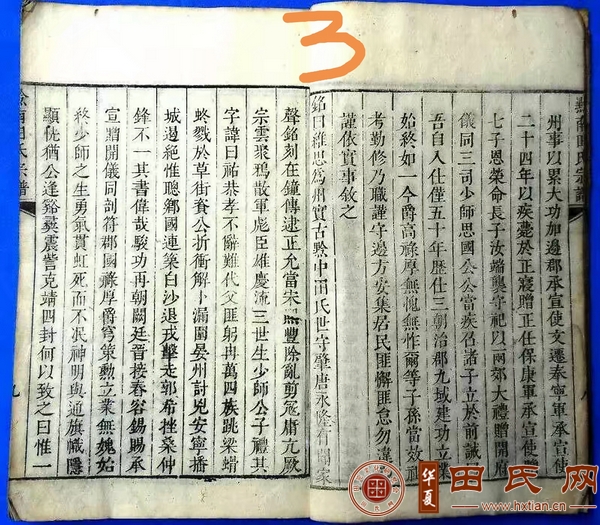 3
黔南田氏宗譜
州事以累大功加邊郡承宣使文遷泰寧軍承宣使
二十四年以疾薨於正寢贈正任保康軍承宣使
七子恩榮命長子汝端襲守祀以兩郊大禮贈開府
儀同三司少師思國公公當疾召諸子立於前誡
吾自入仕僅五十年歷仕三朝治郡九域建功立業
始終如一今爵高祿厚無愧無怍爾等子孫當效祖
考勤修乃職謹守邊方安集居民匪懈匪怠勿違
謹依實事敘之
銘曰維思為州實古黔中田氏世守肇唐永隆有開家
聲銘刻在鐘傳逮正允當宋豐除亂剪寇庸亢厥
宗雲聚鴉散軍彪臣雄慶流三世生少師公子禮其
字諱曰祐恭孝不辭難代父匪躬冉萬四族跳梁蝟
蜂戮於草街賓公折衝解卜漏圍晏州計兇安寧播
城邊絕惟聰鄉國連築白沙退戎擊走郭希挫桑仲
鋒不一其書偉哉駿功再朝闕廷晉接春谷錫賜承
宣贈開儀同剖符郡國祿厚爵穹策勳立業無媿始
終少師之生勇氣貫虹死而不泯神明與通旗幟隱
顯恍猶公逢谿蠻震讋克靖四封何以致之曰惟一
黔南田氏宗譜
九
华夏
田氏网
www.hxtian.cn